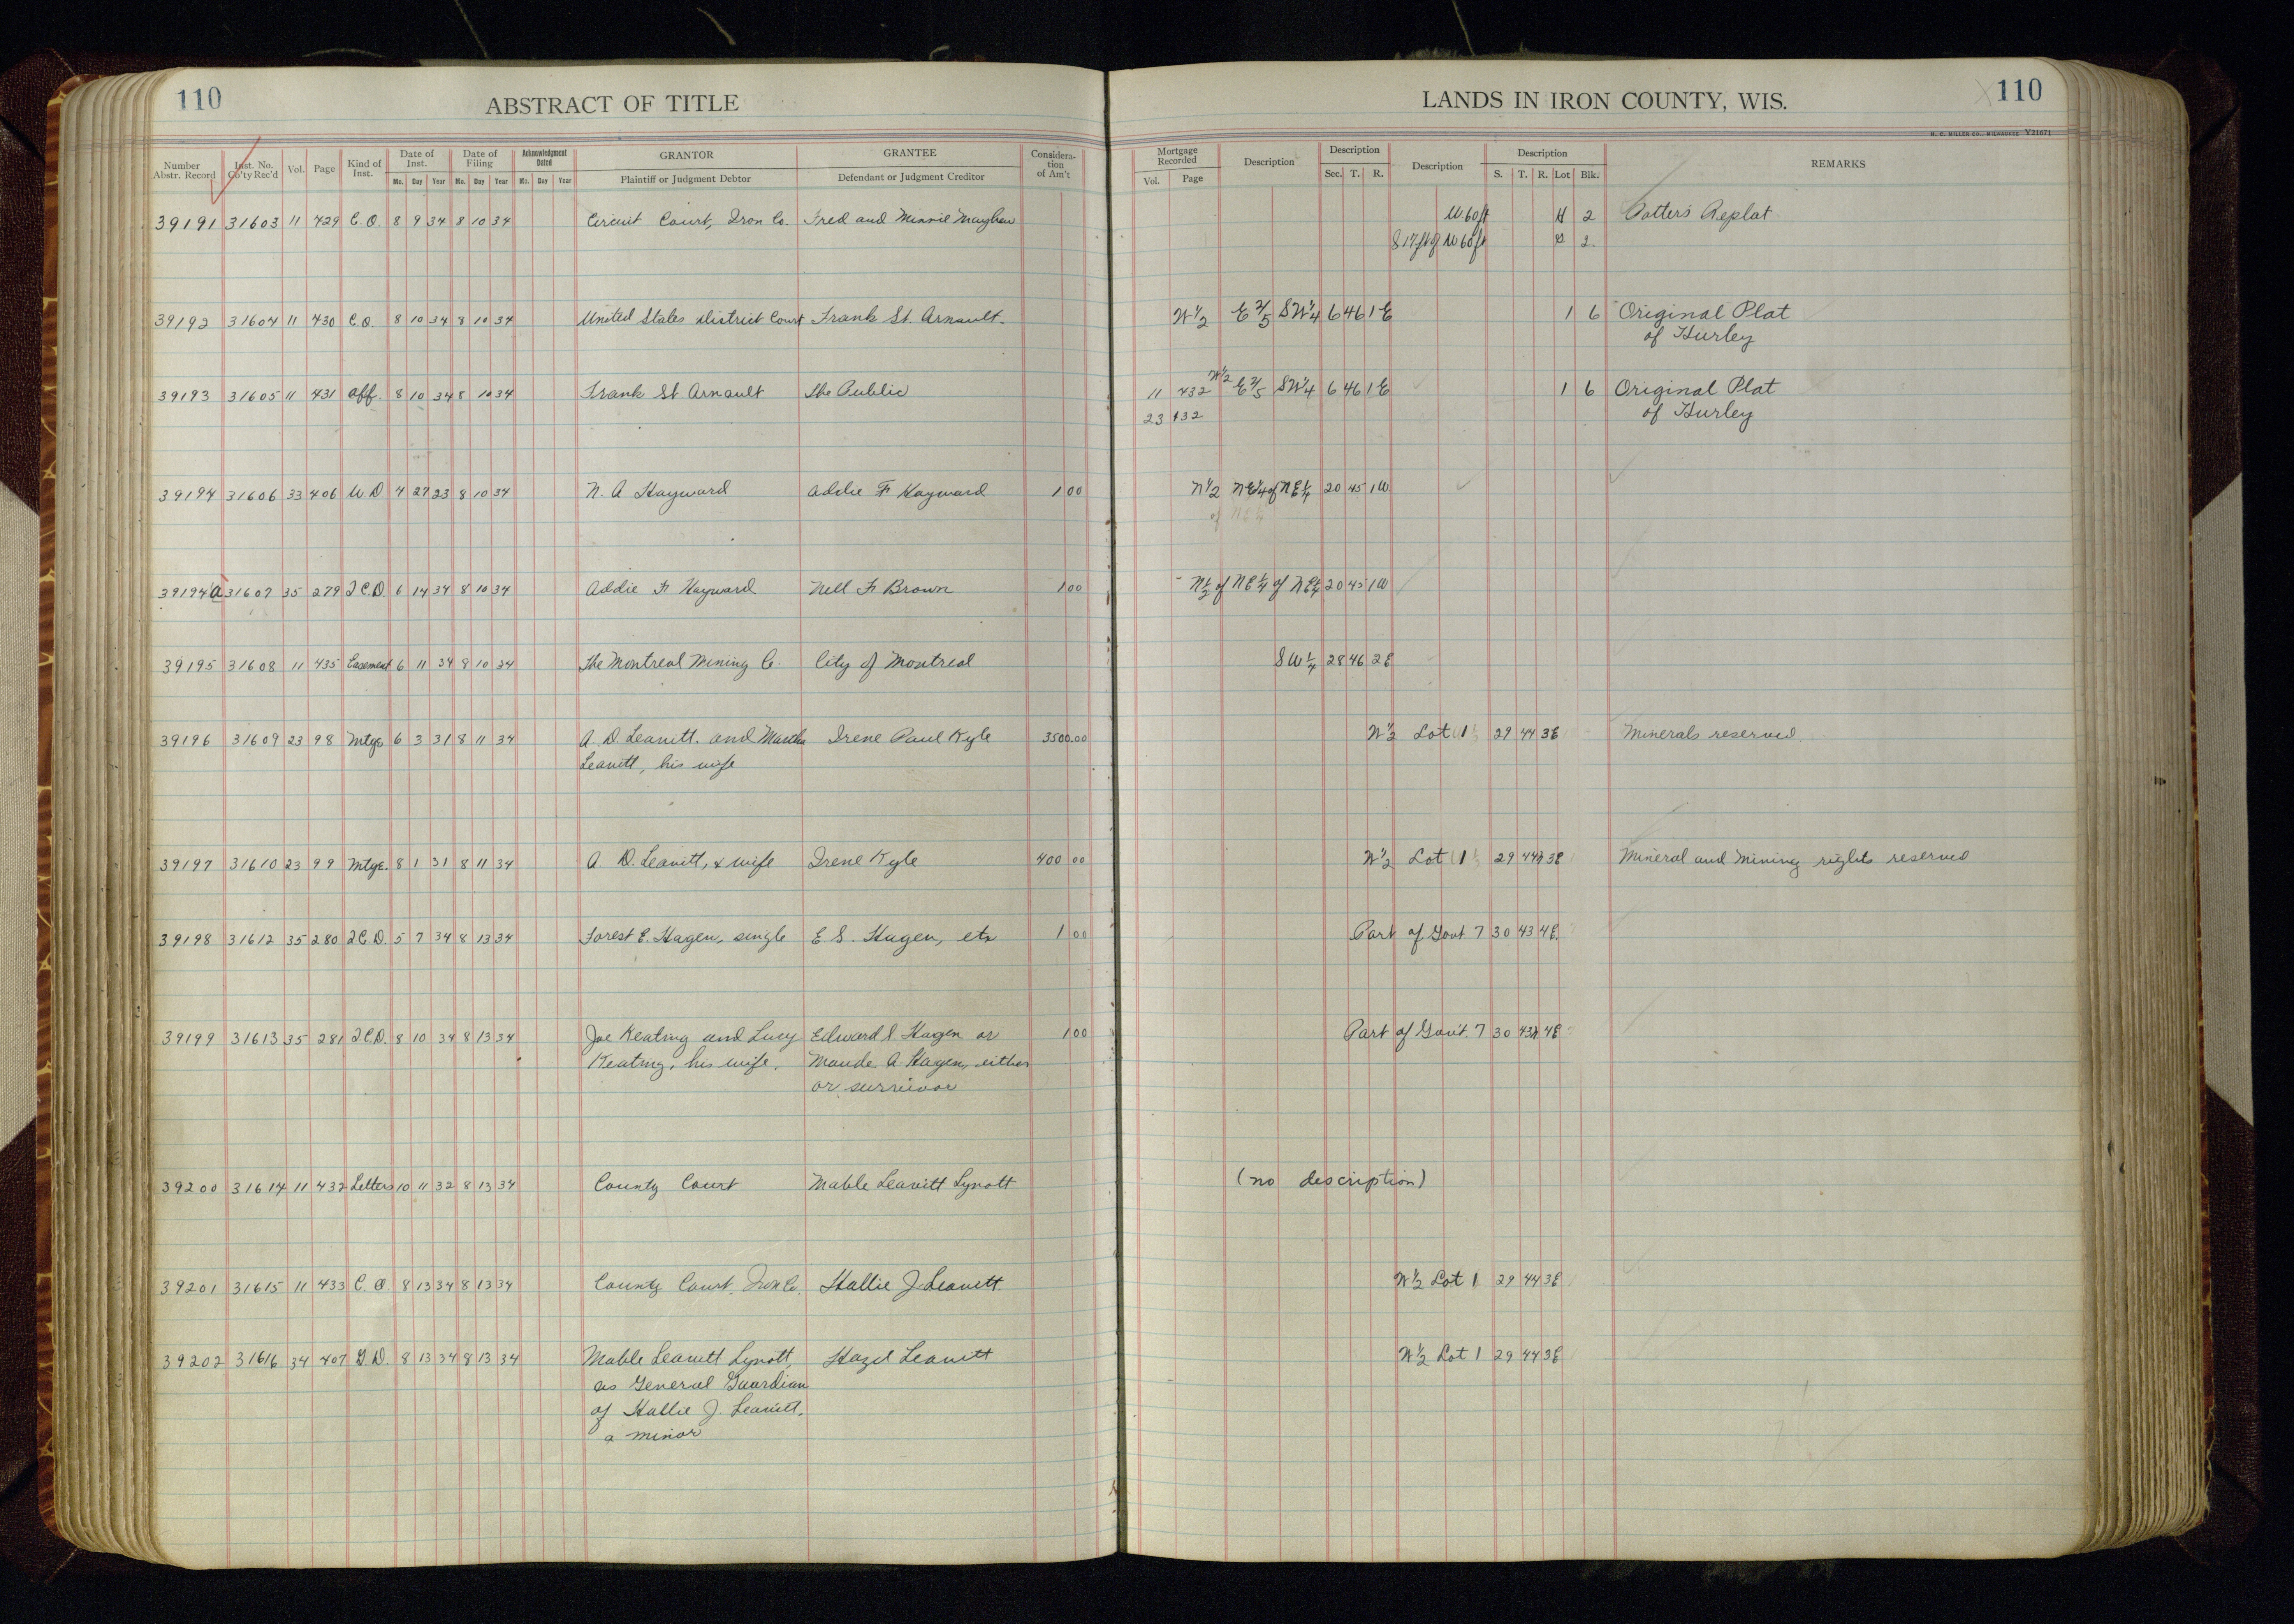 110
ABSTRACT OF TITLE
Number Abstr. Record Inst. No. Co'ty Rec'd Vol. Page Kind of Inst. Date of Inst. Mo. Day Year Date of Filing Mo. Day Year Acknowledgment Dated Mo. Day Year GRANTOR Plaintiff or Judgment Debtor GRANTEE Defendant or Judgment Creditor Consideration of Am't
39191 31603 11 429 C.O. 8 9 34 8 10 34 Circuit Court, Iron Co. Fred and Minnie
39192 31604 11 430 C.O. 8 10 34 8 10 34 United States District Court Frank St. Arnault
39193 31605 11 431 Aff. 8 10 34 8 10 34 Frank St Arnault The Public
39194 31606 33 406 W.D 4 27 23 8 10 34 N. A Hayward Addie F Hayward 1 00
39194A 31607 35 279 Q.C.D. 6 14 34 8 10 34 Addie F Hayward Nell F Brown 1 00
39195 31608 11 435 Easement 6 11 34 8 10 34 The Montreal Mining Co. City of Montreal
39196 31609 23 98 Mtge 6 3 31 8 11 34 A. D. Leavitt. and Martha Irene Paul Kyle 3500.00
Leavitt, his wife
39197 31610 23 99 Mtge. 8 1 31 8 11 34 A. D. Leavitt, & wife Irene Kyle 400 00
39198 31612 35 280 Q.C.D. 5 7 34 8 13 34 Forest E. Hagen, single E. S. Hagen, etx 1 00
39199 31613 35 281 Q.C.D. 8 10 34 8 13 34 Joe Keating and Lucy Edward S Hagen or 1 00
Keating, his wife. Maude A. Hagen, either
or survivor
39200 31614 11 432 Letters 10 11 32 8 13 34 County Court Mable Leavitt Lynott
39201 31615 11 433 C.O. 8 13 34 8 13 34 County Court, Iron Co. Hallie J. Leavitt.
39202 31616 34 407 G.D. 8 13 34 8 13 34 Mable Leavitt Lynott, Hazel Leavitt
as General Guardian
of Hallie J. Leavitt,
a minor
LANDS IN IRON COUNTY, WIS.
110
H. C. MILLER CO., MILWAUKEE Y21671
Mortgage Recorded Vol. Page Description Description Sec. T. R. Description Description S. T. R. Lot Blk. REMARKS
W 60 ft 2 Potter's Replat
S 17 ft of W 60 ft 2
W 1/2 E 2/5 SW 1/4 6 46 1 E 1 6 Original Plat
of Hurley
11 432 W 1/2 E 2/5 SW 1/4 6 46 1 E 1 6 Original Plat
23 132 of Hurley
N 1/2 NE 1/4 of NE 1/4 20 45 1 W
of NE 1/4
N 1/2 of NE 1/4 of NE 1/4 20 45 1 W
SW 1/4 28 46 2 E
W 1/2 Lot 1 29 44 3 E Minerals reserved.
W 1/2 Lot 1 29 44N 3 E Mineral and mining rights reserved
Part of Govt. 7 30 43 4 E.
Part of Gov't. 7 30 43N 4 E
(no description)
W 1/2 Lot 1 29 44 3 E
W 1/2 Lot 1 29 44 3 E